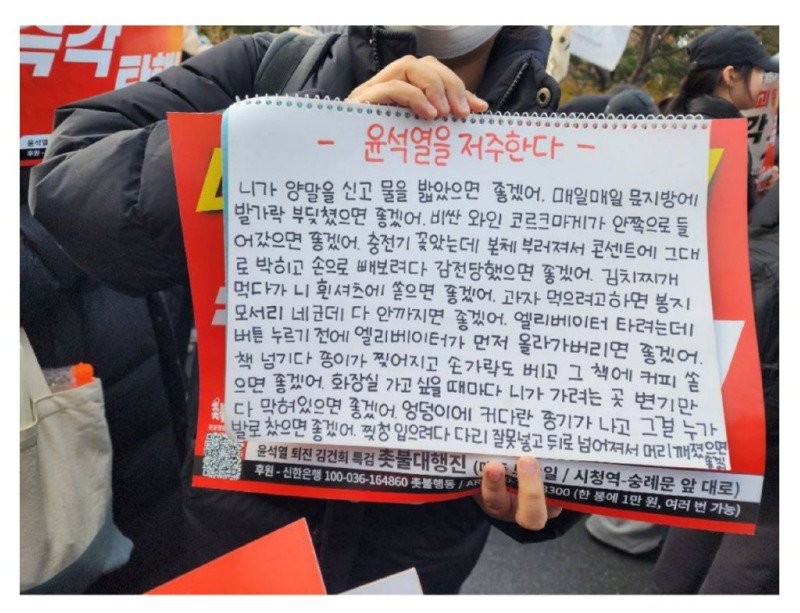 즉각
탄핵
윤석열
후원
- 윤석열을 저주한다 -
니가 양말을 신고 물을 밟았으면 좋겠어. 매일매일 문지방에
발가락 부딪쳤으면 좋겠어. 비싼 와인 코르크마개가 안쪽으로 들
어갔으면 좋겠어. 충전기 꽂았는데 본체 부러져서 콘센트에 그대
로 박히고 손으로 빼보려다 감전당했으면 좋겠어. 김치찌개
먹다가 니 흰셔츠에 쏟으면 좋겠어. 과자 먹으려고하면 봉지
모서리 네군데 다 안까지면 좋겠어. 엘리베이터 타려는데
버튼 누르기 전에 엘리베이터가 먼저 올라가버리면 좋겠어.
책 넘기다 종이가 찢어지고 손가락도 베고 그 책에 커피 쏟
으면 좋겠어. 화장실 가고 싶을 때마다 니가 가려는 곳 변기만
다 막혀있으면 좋겠어. 엉덩이에 커다란 종기가 나고 그걸 누가
발로 찼으면 좋겠어. 찢청 입으려다 다리 잘못넣고 뒤로 넘어져서 머리 깨졌으면
좋겠어
윤석열 퇴진 김건희 특검 촛불대행진 일 / 시청역-숭례문 앞 대로)
후원 - 신한은행 100-036-164860 촛불행동 / 3300 (한 통에 1만 원, 여러 번 가능)